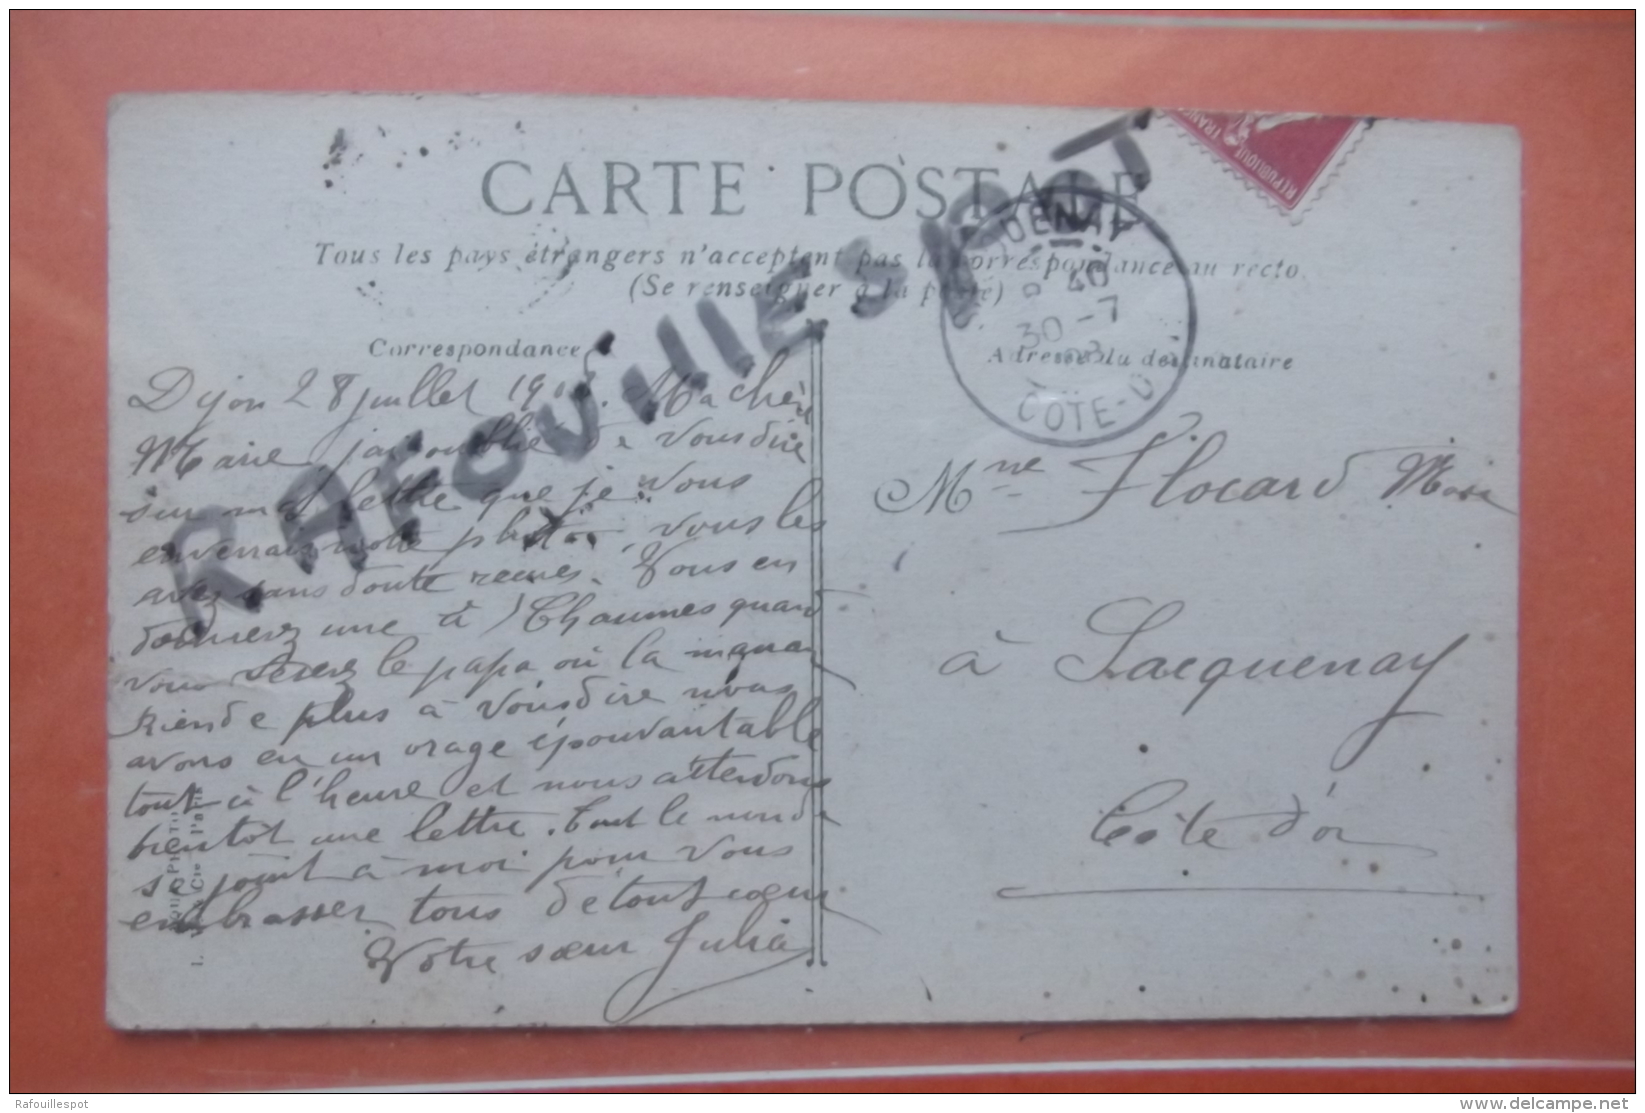 CARTE POSTALE
Tous les pays étrangers n'acceptent pas la correspondance au recto
(Se renseigner à la poste)
Correspondance
Adresse du destinataire
RAFOUILLESPOT
RÉPUBLIQUE FRANÇ
QUENAY
40
30 -7
COTE-D
Dijon 28 juillet Ma chère
Marie j'ai oublié de vous dire
sur ma lettre que je vous
enverrais notre photo, vous les
avez sans doute recues. Vous en
donnerez une à Chaumes quand
vous serez le papa où la maman
Rien de plus à vous dire nous
avons eu un orage épouvantable
tout à l'heure et nous attendons
bientôt une lettre. Tout le monde
se joint à moi pour vous
embrasser tous de tout cœur
Votre sœur Julia
Mme Flocard
à Sacquenay
Côte d'or
Rafouillespot
delcampe.net